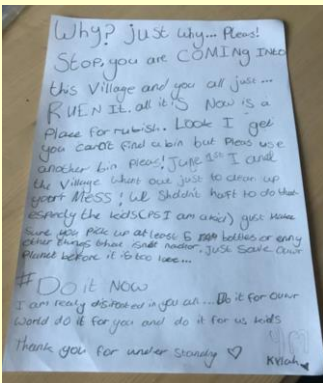 Why? just Why... Pleas!
Stop, you are COMING INTO
this Village and you all just...
RUEN It. all it's Now is a
Place for rubish.. Look I get
you can't find a bin but Pleas use
another bin pleas! June 1st I and
the Village Whent out just to clean up
your MESS! We Shdn't haft to do that
espanly the kids(PS I am a kid) just
sure you Pick up at least 5 bottles or enny
other things that isnt nachor. Just Save Owr
Planet before it is too late...
#Do it Now
I am realy disapointed in you all... Do it for Owr
World do it for you and do it for us kids
Thank you for under standing ♡
Kylah